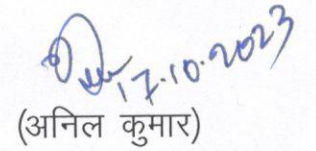 17.10.2023
(अनिल कुमार)